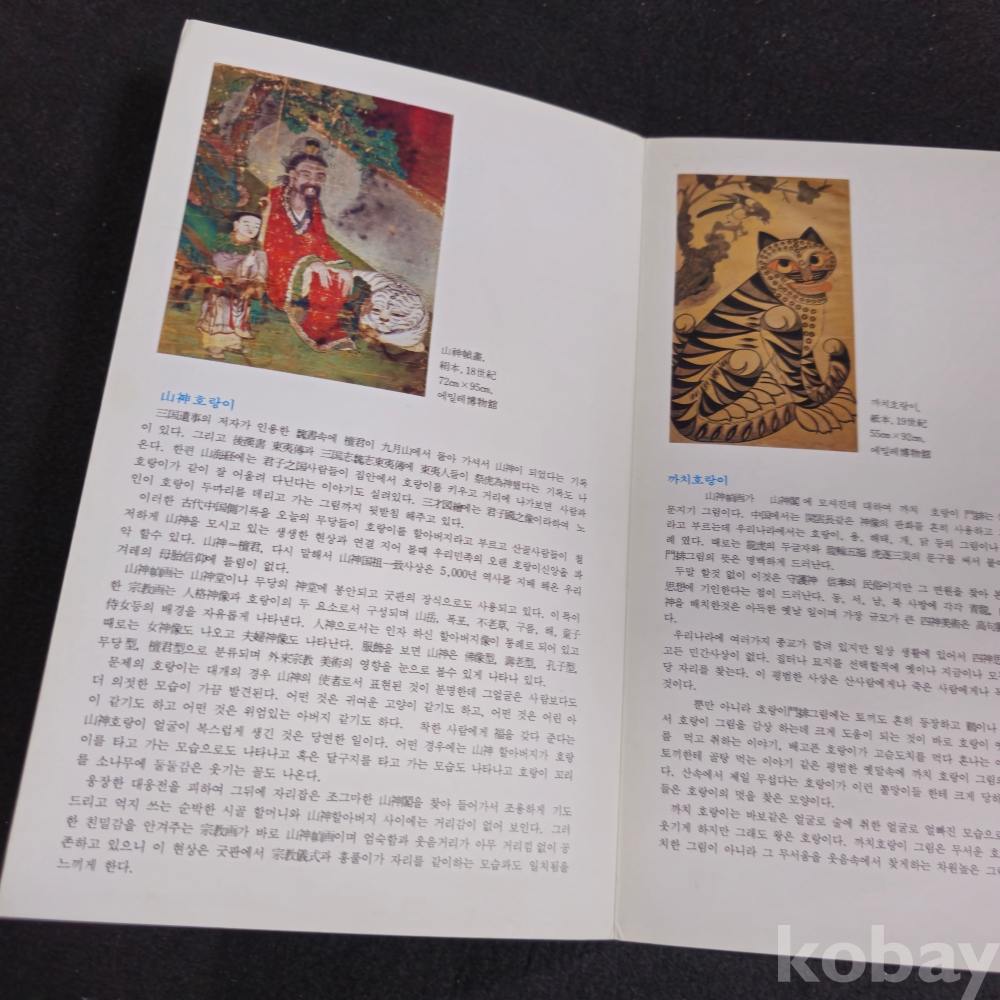 山神幀畫,
絹本, 18世紀
72㎝×95㎝,
에밀레博物館
山神호랑이
三国遺事의 저자가 인용한 魏書속에 檀君이 九月山에서 돌아 가셔서 山神이 되었다는 기록
이 있다. 그리고 後漢書 東夷傳과 三国志魏志東夷傳에 東夷人들이 祭虎為神했다는 기록도 나
온다. 한편 山海経에는 君子之国사람들이 집안에서 호랑이를 키우고 거리에 나가보면 사람과
호랑이가 같이 잘 어울려 다닌다는 이야기도 실려있다. 三才図繪에는 君子國之像이라하여 노
인이 호랑이 두마리를 데리고 가는 그림까지 뒷받침 해주고 있다.
이러한 古代中国側기록을 오늘의 무당들이 호랑이를 할아버지라고 부르고 산골사람들이 철
저하게 山神을 모시고 있는 생생한 현상과 연결 지어 볼때 우리민족의 오랜 호랑이신앙을 파
악 할수 있다. 山神=檀君, 다시 말해서 山神国祖一致사상은 5,000년 역사를 지배 해온 우리
겨레의 母胎信仰에 틀림이 없다.
山神幀画는 山神堂이나 무당의 神堂에 봉안되고 굿관의 장식으로도 사용되고 있다. 이 특이
한 宗教画는 人格神像과 호랑이의 두 요소로서 구성되며 山岳, 폭포, 不老草, 구름, 해, 童子
侍女등의 배경을 자유롭게 나타낸다. 人神으로서는 인자 하신 할아버지像이 통례로 되어 있고
때로는 女神像도 나오고 夫婦神像도 나타난다. 服飾을 보면 山神은 佛像型, 壽老型, 孔子型,
무당型, 檀君型으로 분류되며 外来宗教 美術의 영향을 눈으로 볼수 있게 나타나 있다.
문제의 호랑이는 대개의 경우 山神의 使者로서 표현된 것이 분명한데 그얼굴은 사람보다도
더 의젓한 모습이 가끔 발견된다. 어떤 것은 귀여운 고양이 같기도 하고, 어떤 것은 어린 아
이 같기도 하고 어떤 것은 위엄있는 아버지 같기도 하다. 착한 사람에게 福을 갖다 준다는
山神호랑이 얼굴이 복스럽게 생긴 것은 당연한 일이다. 어떤 경우에는 山神 할아버지가 호랑
이를 타고 가는 모습으로도 나타나고 혹은 달구지를 타고 가는 모습도 나타나고 호랑이 꼬리
를 소나무에 둘둘감은 웃기는 꼴도 나온다.
웅장한 대웅전을 피하여 그뒤에 자리잡은 조그마한 山神閣을 찾아 들어가서 조용하게 기도
드리고 억지 쓰는 순박한 시골 할머니와 山神할아버지 사이에는 거리감이 없어 보인다. 그러
한 친밀감을 안겨주는 宗教画가 바로 山神幀画이며 엄숙함과 웃음거리가 아무 거리낌 없이 공
존하고 있으니 이 현상은 굿관에서 宗教儀式과 흥풀이가 자리를 같이하는 모습과도 일치됨을
느끼게 한다.
까치호랑이,
紙本, 19世紀
55㎝×92㎝,
에밀레博物館
까치호랑이
山神幀画가 山神閣에 모셔진데 대하여 까치 호랑이 門排는
문지기 그림이다. 中国에서는 関雲長같은 神像의 판화를 흔히 사용하고
라고 부르는데 우리나라에서는 호랑이, 용, 해태, 개, 닭 등의 그림이나
례 였다. 때로는 龍虎의 두글자와 龍輸五福 虎逐三災의 문구를 써서
門排그림의 뜻은 명백하게 드러난다.
두말 할것 없이 이것은 守護神 信率의 民俗이지만 그 연원을 찾아 본
思想에 기인한다는 점이 드러난다. 동, 서, 남, 북 사방에 각각 青龍,
神을 배치한것은 아득한 옛날 일이며 가장 규모가 큰 四神美術은 高句麗
다.
우리나라에 여러가지 종교가 깔려 있지만 일상 생활에 있어서 四神思
고든 민간사상이 없다. 집터나 묘지를 선택할적에 옛이나 지금이나 모두
당 자리를 찾는다. 이 평범한 사상은 산사람에게나 죽은 사람에게나
것이다.
뿐만 아니라 호랑이門排그림에는 토끼도 흔히 등장하고 鶴이나
서 호랑이 그림을 감상 하는데 크게 도움이 되는 것이 바로 호랑이 옛
를 먹고 취하는 이야기, 배고픈 호랑이가 고슴도치를 먹다 혼나는 이
토끼한테 골탕 먹는 이야기 같은 평범한 옛말속에 까치 호랑이 그림의
다. 산속에서 제일 무섭다는 호랑이가 이런 꼴망이들 한테 크게 당하
들은 호랑이의 멋을 찾은 모양이다.
까치 호랑이는 바보같은 얼굴로 술에 취한 얼굴로 얼빠진 모습으로
웃기게 하지만 그래도 왕은 호랑이다. 까치호랑이 그림은 무서운 호
치한 그림이 아니라 그 무서움을 웃음속에서 찾게하는 차원높은 그
kobay